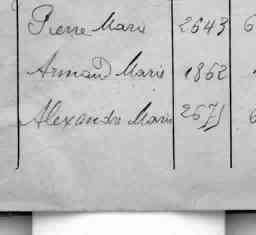 Pierre Marie 2643 6
Armand Marie 1862
Alexandre Marie 2671 6